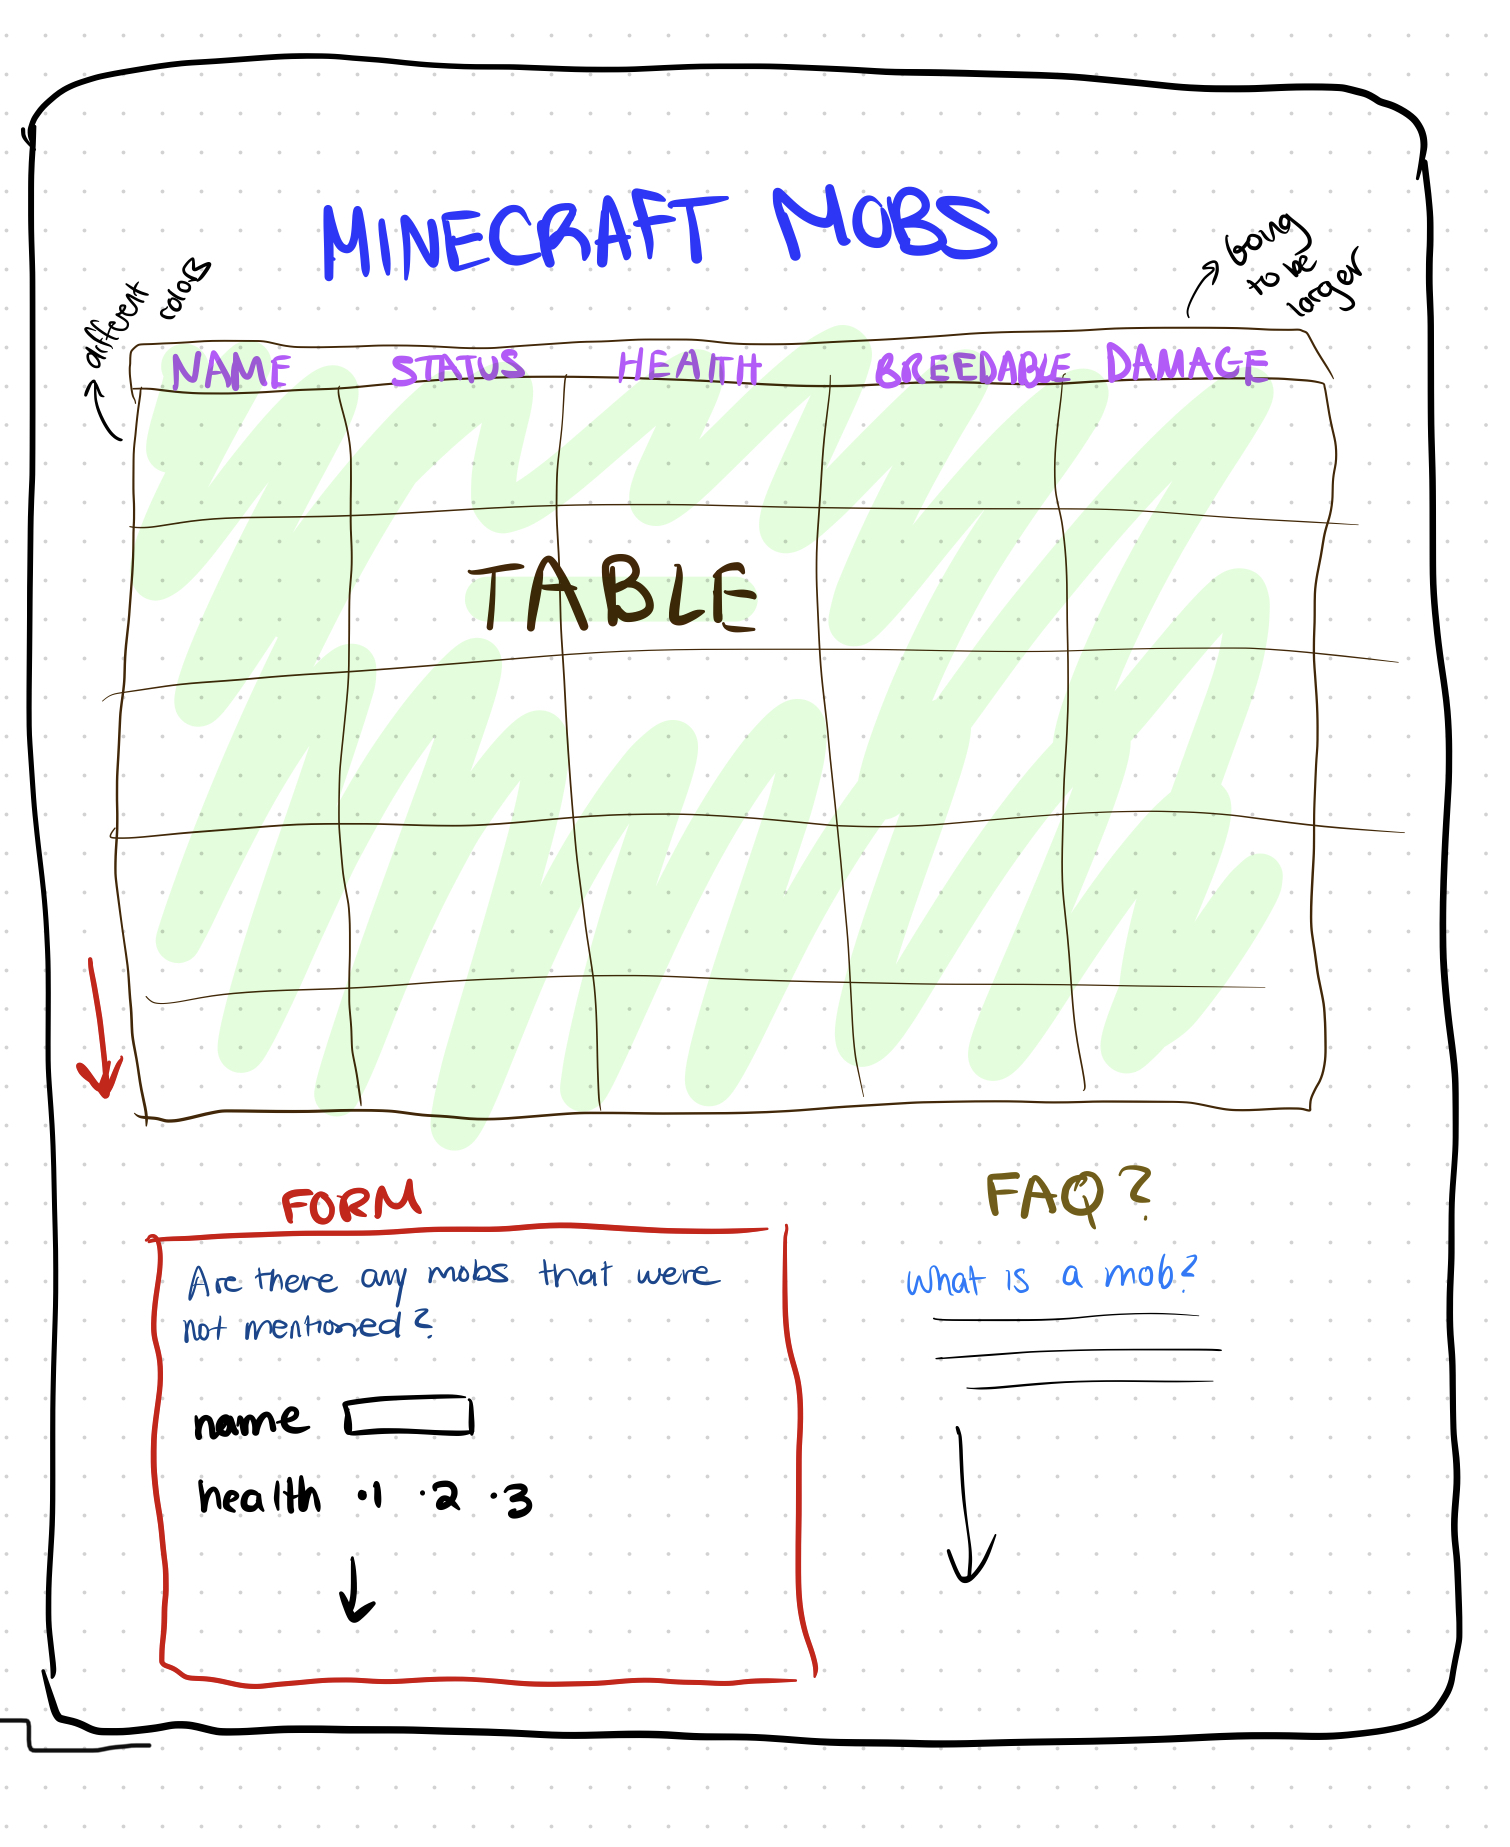 MINECRAFT MOBS
different
colors
Going
to be
larger
NAME STATUS HEALTH BREEDABLE DAMAGE
TABLE
FORM
Are there any mobs that were
not mentioned?
name
health ·1 ·2 ·3
FAQ?
What is a mob?